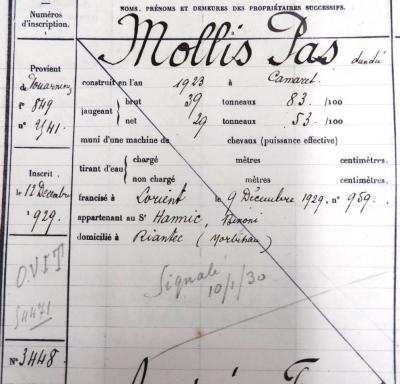 NOMS, PRÉNOMS ET DEMEURES DES PROPRIÉTAIRES SUCCESSIFS.
Numéros
d'inscription.
Mollis Pas dundée
Provient
de Douarnenez
f° 849
n° 2/41
construit en l'an 1923 à Camaret.
jaugeant brut 39 tonneaux 83. /100
net 29 tonneaux 53. /100
muni d'une machine de chevaux (puissance effective)
tirant d'eau chargé mètres centimètres.
non chargé mètres centimètres.
Inscrit
le 12 Décembre
1929.
francisé à Lorient le 9 Décembre 1929. n° 959.
appartenant au Sr Hannic, Bénoni
domicilié à Riantec (Morbihan)
Signalé
10/1/30
O.V.S.T
S4471
N° 3448.